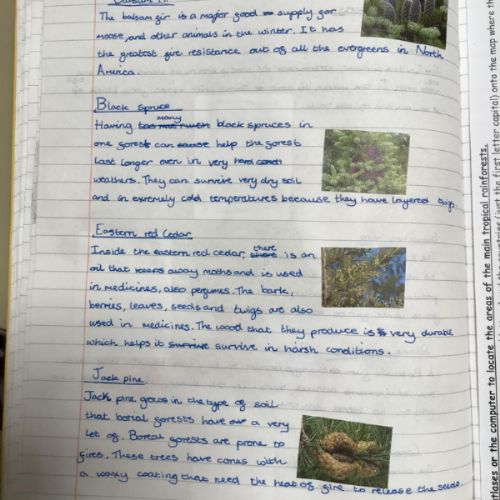 Balsam fir
The balsam fir is a major food supply for
moose and other animals in the winter. It has
the greatest fire resistance out of all the evergreens in North
America.
Black Spruce
Having too much many black spruces in
one forest can cause help the forest
last longer even in very hard
weathers. They can survive very dry soil
and in extremely cold temperatures because they have layered twigs.
Eastern red Cedar
Inside the eastern red cedar, there is an
oil that keeps away moths and is used
in medicines, also perfumes. The bark,
berries, leaves, seeds and twigs are also
used in medicines. The wood that they produce is very durable
which helps it survive survive in harsh conditions.
Jack pine
Jack pine grows in the type of soil
that borial forests have a very
lot of. Boreal forests are prone to
fires. These trees have cones with
a waxy coating that need the heat of fire to release the seeds.
classes or the computer to locate the areas of the main tropical rainforests.
the countries (just the first letter capital) onto the map where th